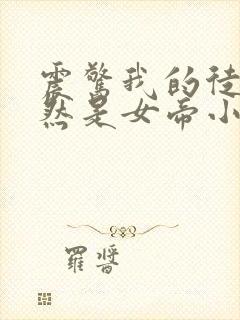 震惊我的徒
然是女帝小
羅醬